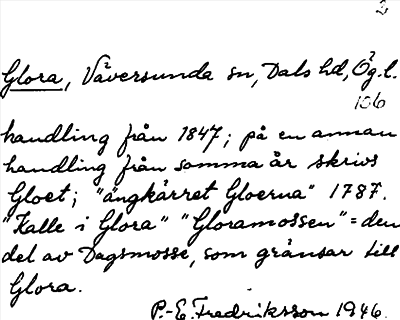 2
Glora, Väversunda sn, Dals hd, Ög.l.
106
handling från 1847; på en annan
handling från samma år skrivs
Gloet; "ängkärret Gloerna" 1787.
"Kalle i Glora" "Gloramossen" = den
del av Dagsmosse, som gränsar till
Glora.
P.-E. Fredriksson 1946.